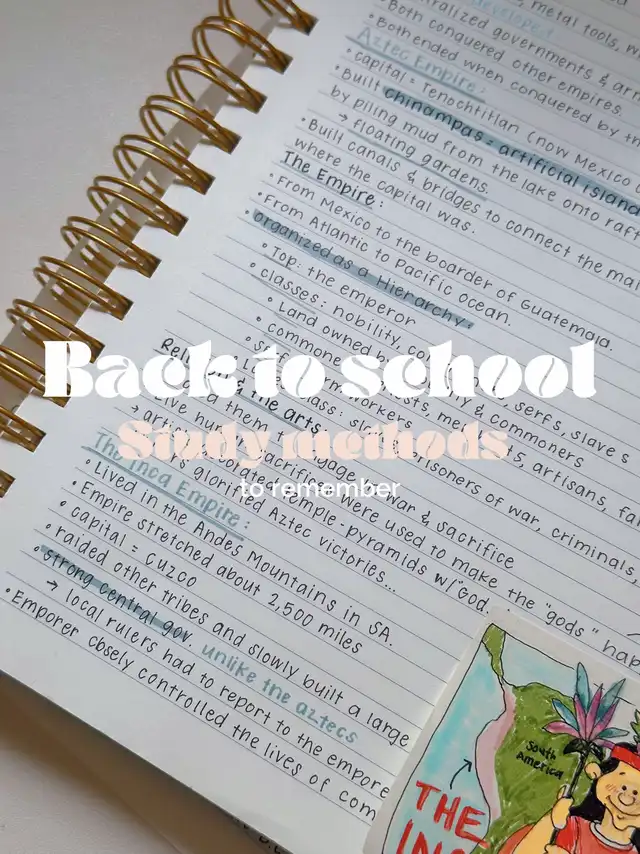 developed
metal tools, w
tralized governments & arr
Both conquered other empires.
Both ended when conquered by th
Aztec Empire:
• capital = Tenochtitlan (now Mexico
• Built chinampas = artificial island
by piling mud from the lake onto raft
→ floating gardens.
• Built canals & bridges to connect the mai
where the capital was.
The Empire:
• From Mexico to the boarder of Guatemala.
• From Atlantic to Pacific Ocean.
• organized as a Hierarchy:
• Top: the emperor
• classes: nobility, serfs, slaves
• Land owned & commoners
• commone artisans, fa
workers prisoners of war, criminals
Back to school
Study methods
to remember
Religion & the arts
war & sacrifice
sacrifice were used to make the "gods" hap
temple-pyramids w/ God.
glorified Aztec victories...
The Inca Empire:
• Lived in the Andes Mountains in SA.
• Empire stretched about 2,500 miles
• capital = cuzco
• raided other tribes and slowly built a large
• strong central gov. unlike the aztecs
→ local rulers had to report to the empore
• Emporer closely controlled the lives of com
South
America
THE
INC